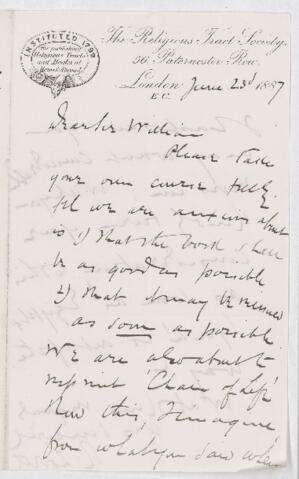 INSTITUTED 1799
for publishing
Religious Tracts
and Books at
The Religious Tract Society,
56, Paternoster Row,
London June 23rd 1887
E.C.
Dear Sir William
Please take
your own course fully.
All we are anxious about
is 1) that the book shall
be as good as possible
2) that it may be issued
as soon as possible
We are also about to
reprint 'Chain of Life'
from this, I imagine
from what you said when